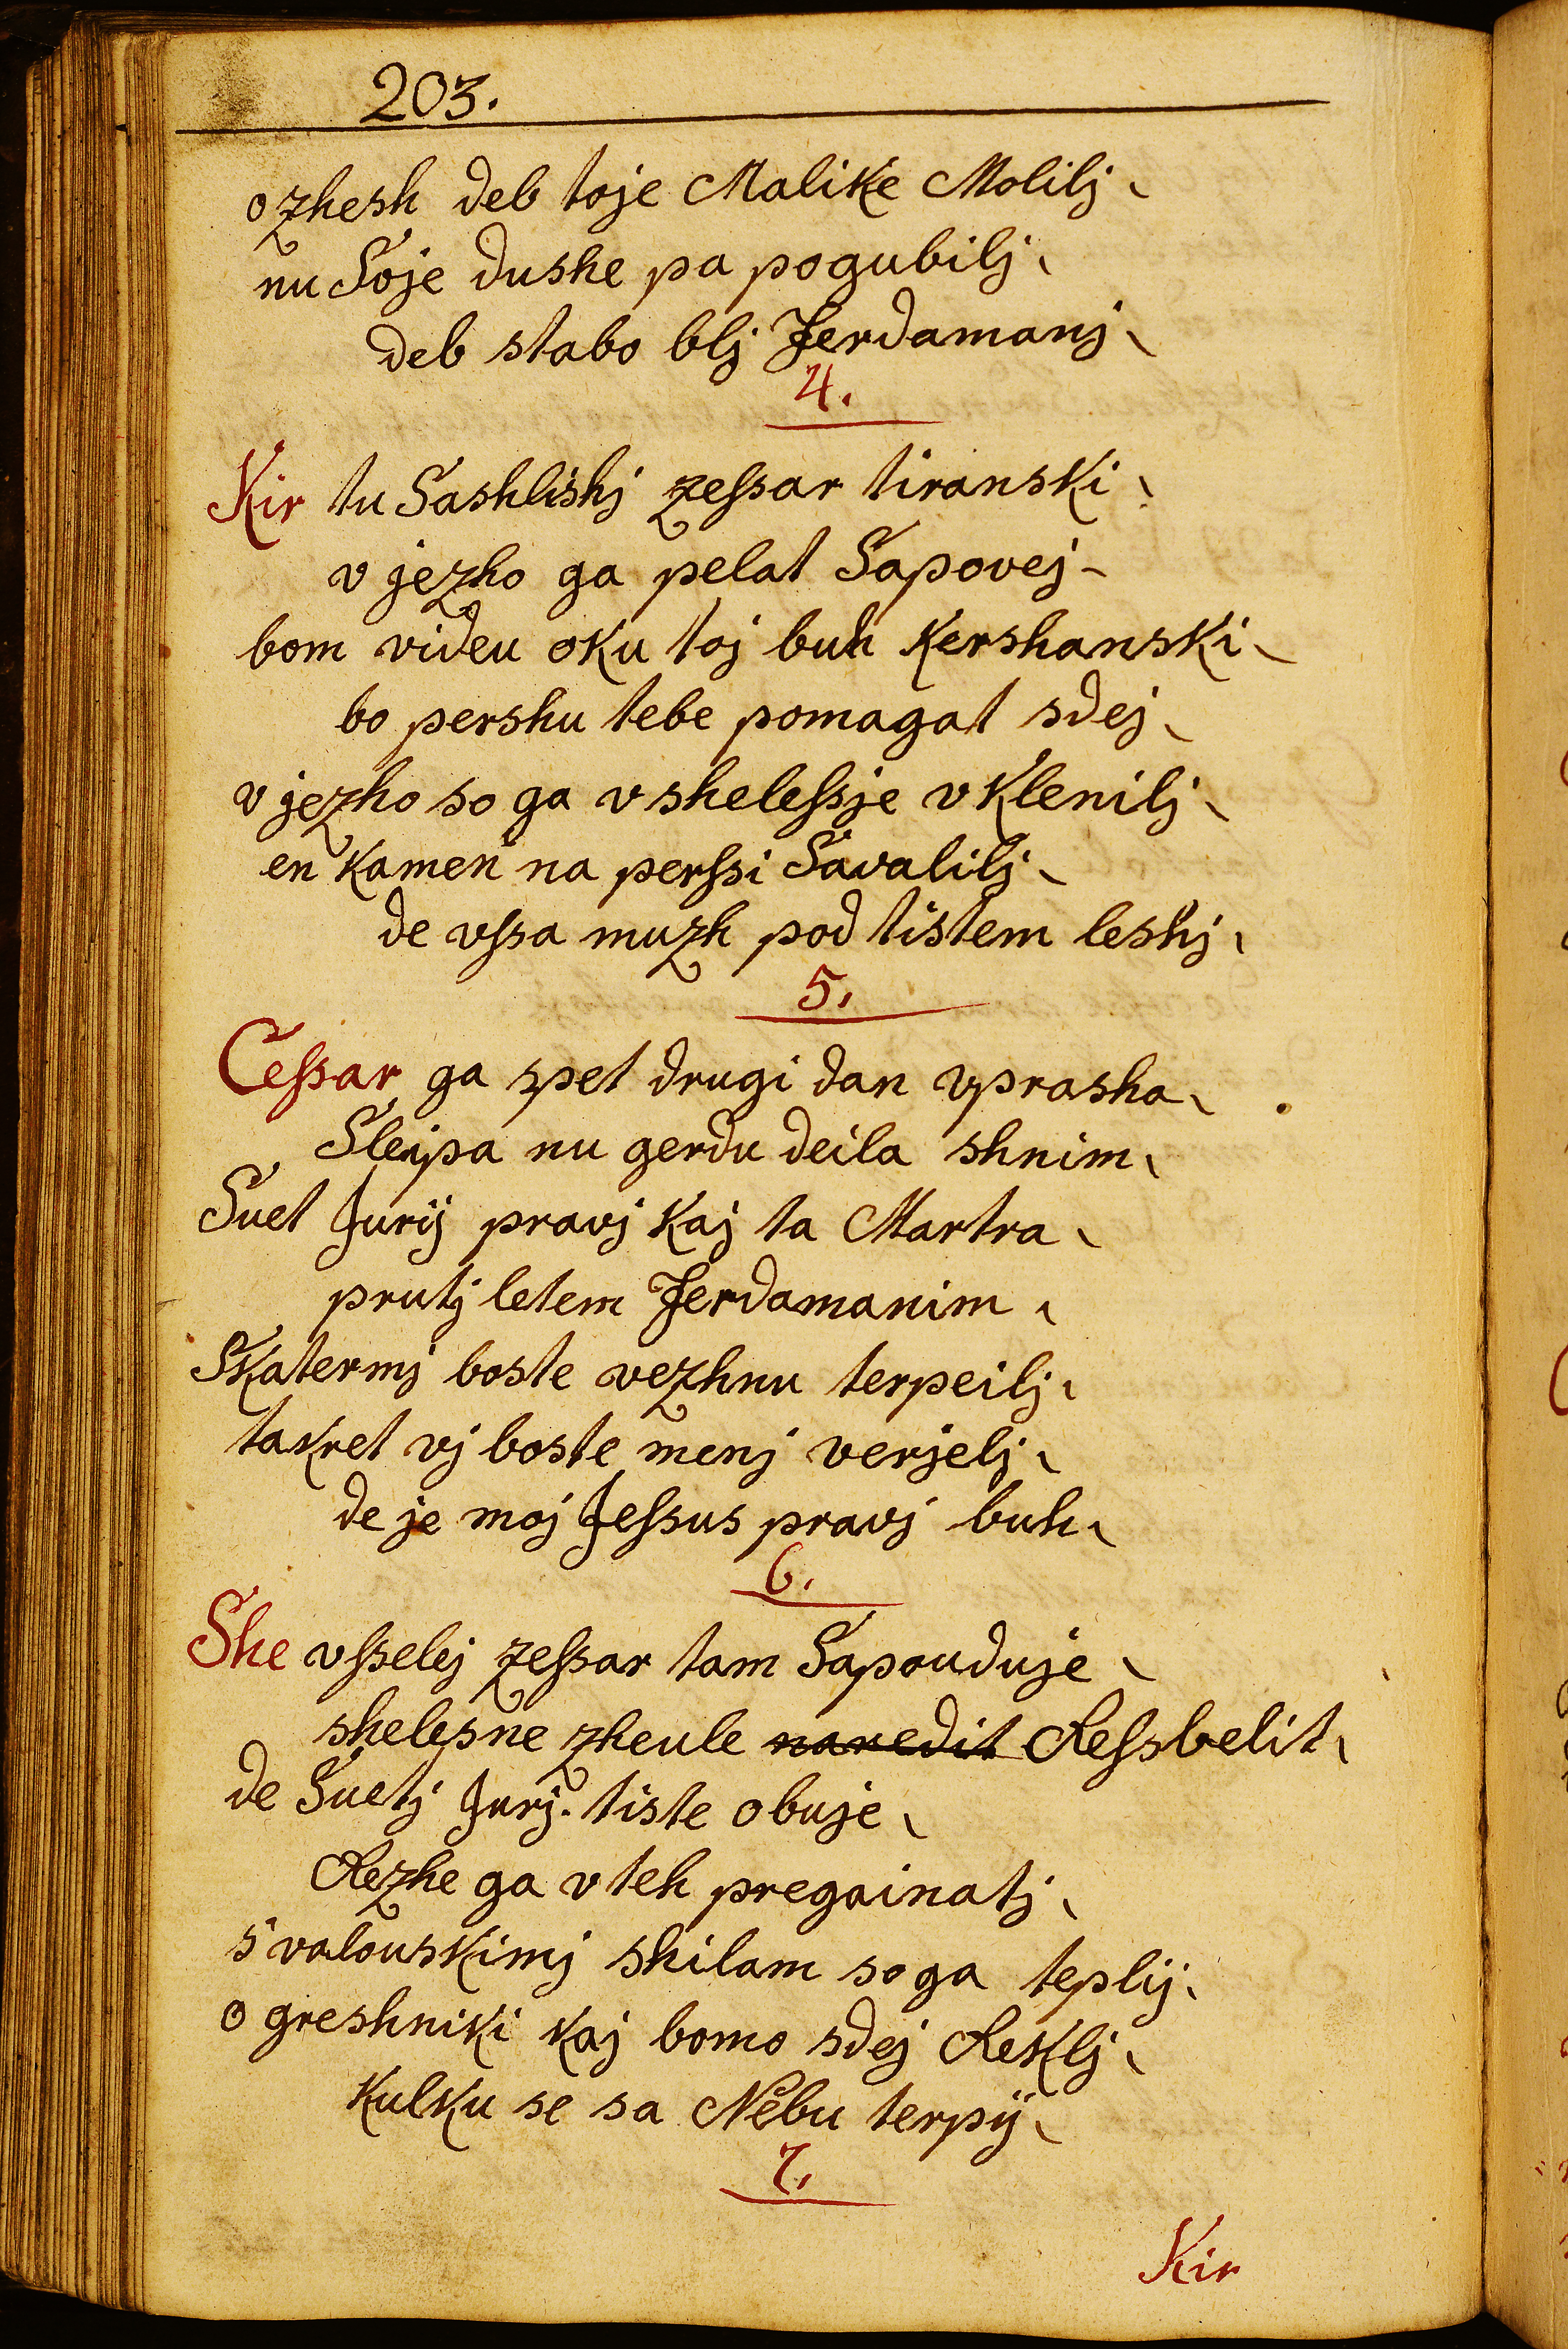 203.
ozhesh deb toje Malike Molilj
nu Soje dushe pa pogubilj
deb stabo blj Ferdamanj
4.
Kir tu Sashlishj zeſsar tiranski
v jezho ga pelat Sapovej
bom videu oku toj buh Kershanski
bo pershu tebe pomagat sdej
v jezho so ga v sheleſsje v Klenilj
en Kamen na perſsi Savalilj
de vſsa muzh pod tistem leshj
5.
Ceſsar ga spet drugi dan vprasha
Sleipa nu gerdu deila shnim
Suet Jurij pravj Kaj ta Martra
prutj letem Ferdamanim
Skatermj boste vezhnu terpeilj
takret vj boste menj verjelj
de je moj Jeſsus pravj buh
6.
She vſselej zeſsar tam Sapouduje
shelesne zheule naredit Reſsbelit
de Suetj Jurj tiste obuje
Rezhe ga v teh pregainatj
s valouskimj shilam so ga teplij
o greshniki kaj bomo sdej Reklj
Kulku se sa Nebu terpij
7.
Kir